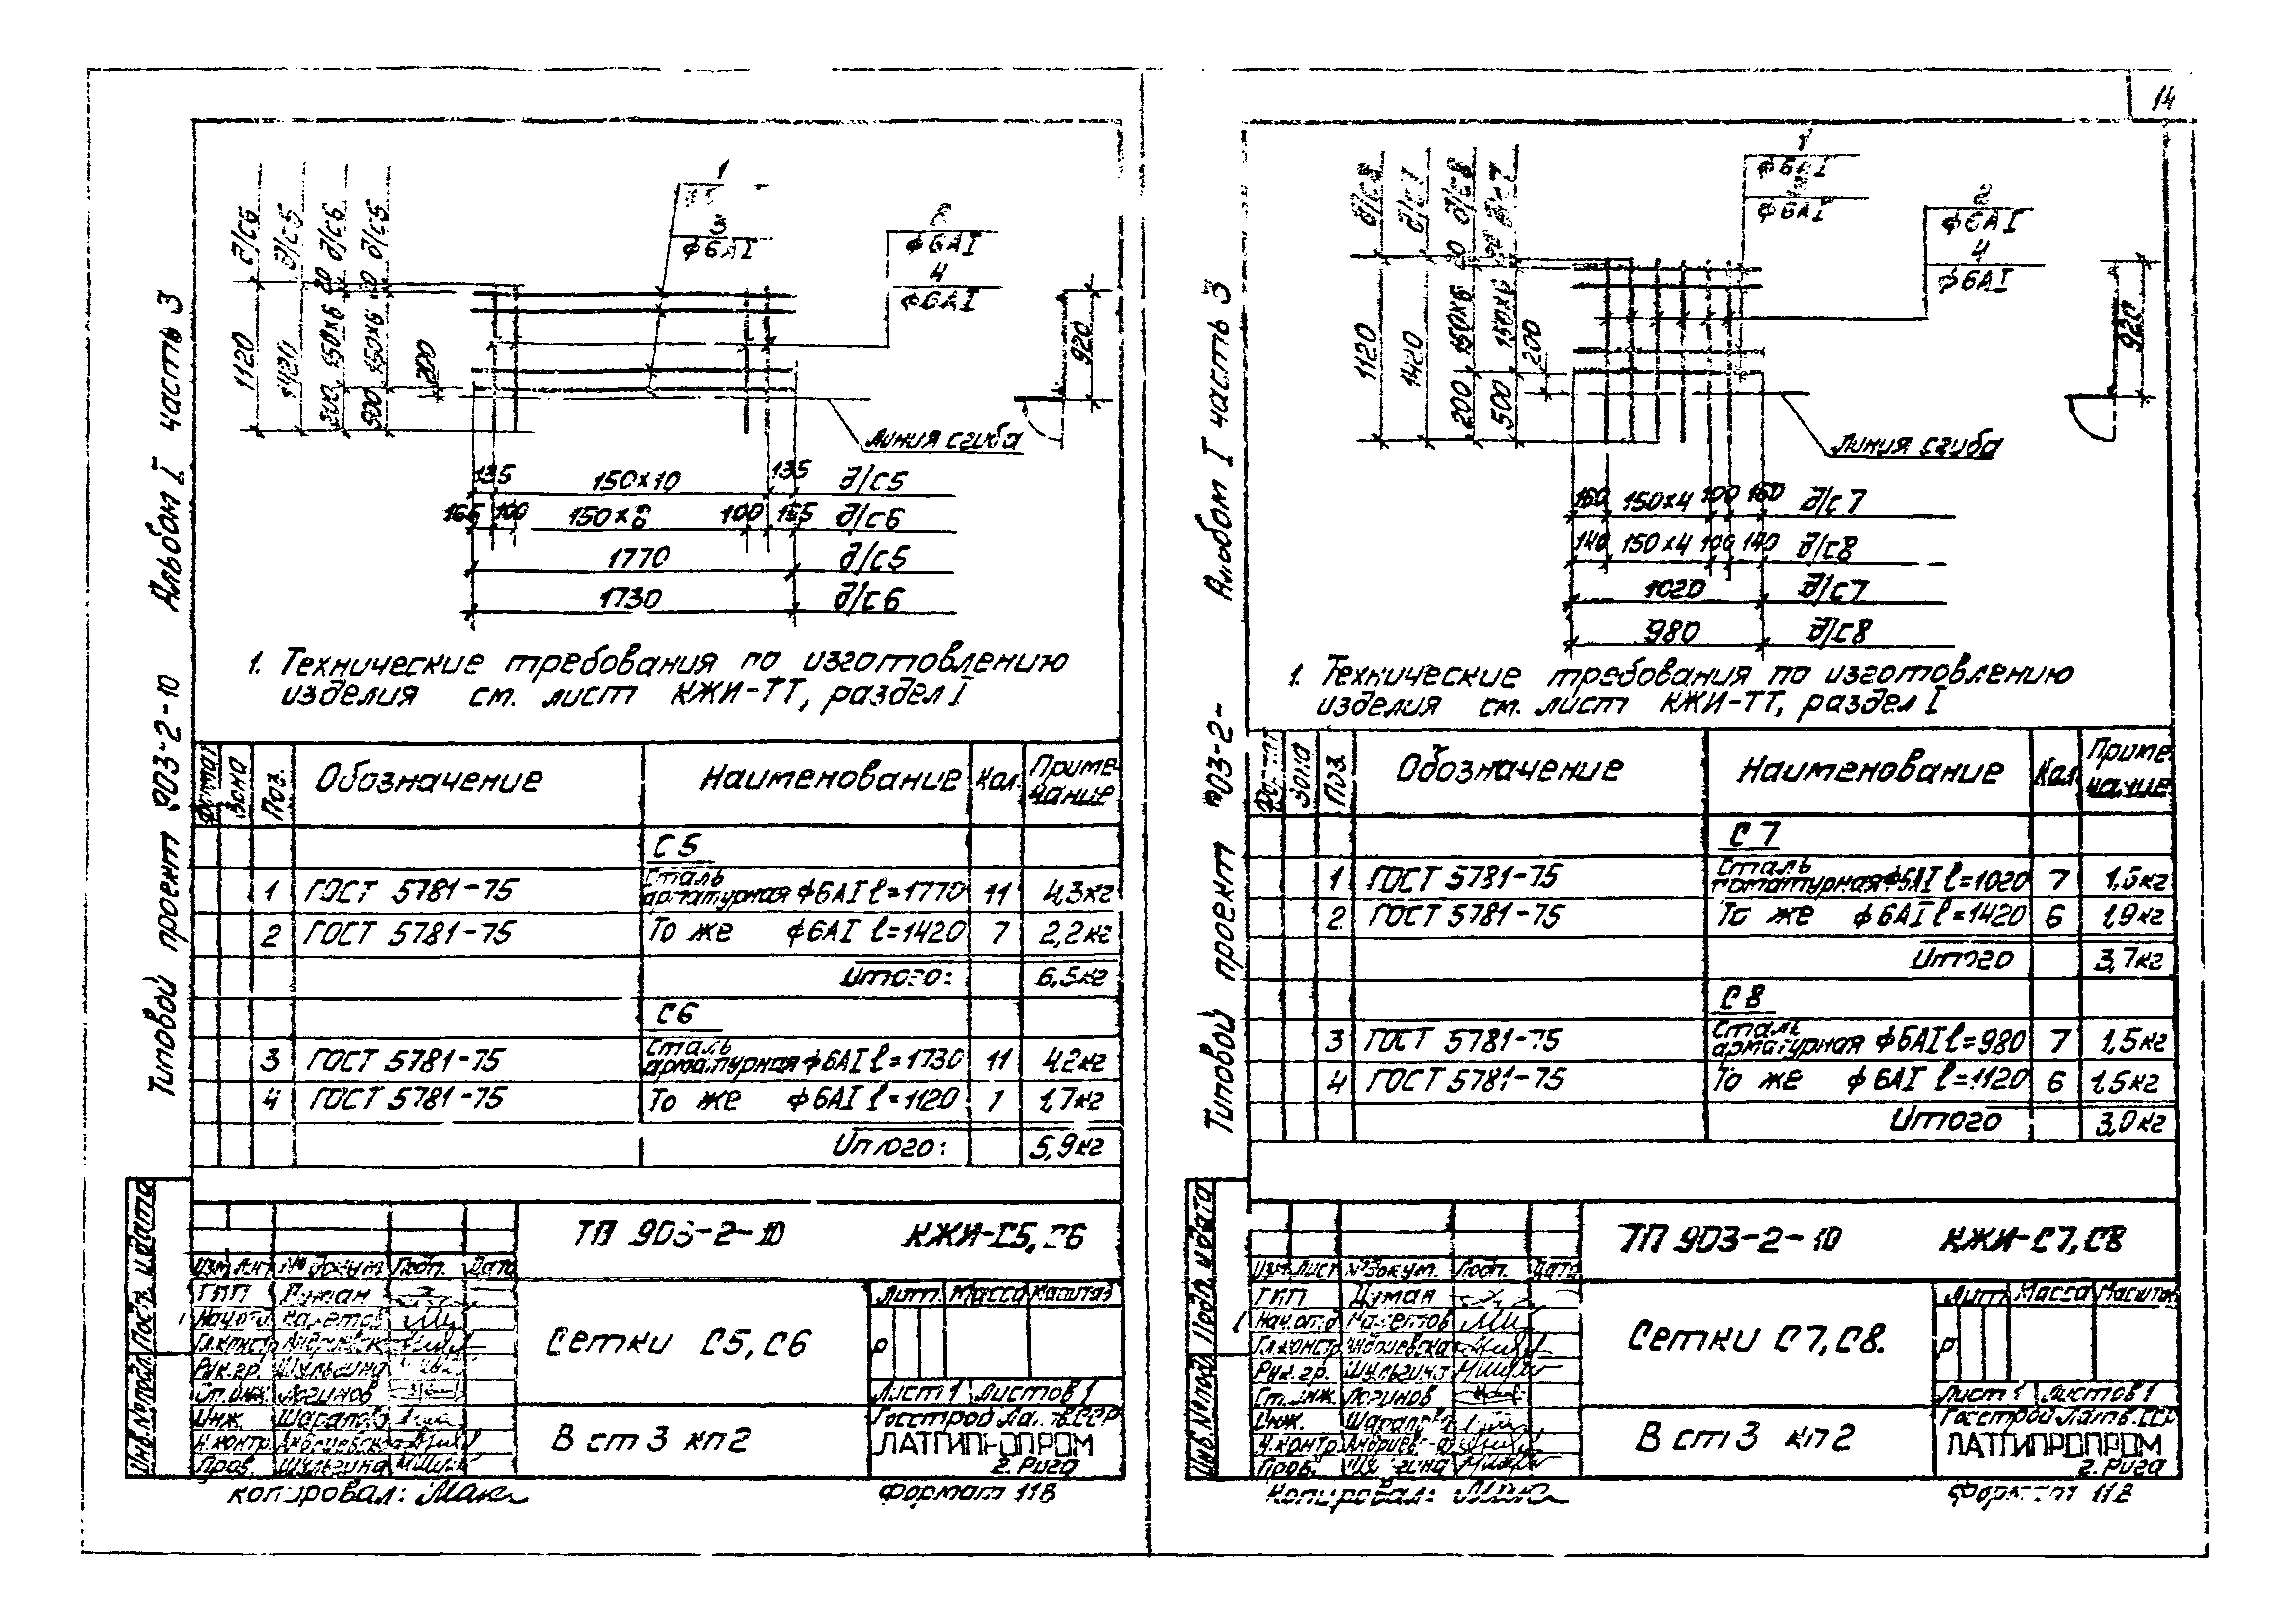 14
Типовой проект 903-2-10 Альбом I часть 3
1120 д/с6
1420 д/с5
150х6 20 д/с6
500 150х6 20 д/с5
200
1
3
ф6АI
ф6АI
4
ф6АI
920
линия сгиба
135 150х10 135 д/с5
165 100 100 165 д/с6
1770 д/с5
1730 д/с6
1. Технические требования по изготовлению
изделия см. лист КЖИ-ТТ, раздел I
Формат Зона Поз. Обозначение Наименование Кол. Примечание
С5
1 ГОСТ 5781-75 Сталь арматурная ф6АI ℓ=1770 11 4,3кг
2 ГОСТ 5781-75 То же ф6АI ℓ=1420 7 2,2кг
Итого: 6,5кг
С6
3 ГОСТ 5781-75 Сталь арматурная ф6АI ℓ=1730 11 4,2кг
4 ГОСТ 5781-75 То же ф6АI ℓ=1120 7 1,7кг
Итого: 5,9кг
Инв.№подл. Подп. и дата
ТП 903-2-10 КЖИ-С5,С6
Изм. Лист № докум. Подп. Дата
ГИП Думан
Нач.отд.
Гл.констр.
Рук.гр. Шульгина
Ст.инж. Логинов
Инж.
Н.контр.
Пров. Шульгина
Сетки С5,С6
Лит. Масса Масштаб
Р
Лист 1 Листов 1
В ст 3 кп 2
Госстрой Латв.ССР
ЛАТГИПРОПРОМ
г. Рига
копировал:
Формат 11В
Типовой проект 903-2- Альбом I часть 3
1120 д/с8
1420 д/с7
200 150х6 д/с8
500 150х6 д/с7
200
1
ф6АI
ф6АI
2
ф6АI
4
ф6АI
920
линия сгиба
160 150х4 100 160 д/с7
140 150х4 100 140 д/с8
1020 д/с7
980 д/с8
1. Технические требования по изготовлению
изделия см. лист КЖИ-ТТ, раздел I
Зона Поз. Обозначение Наименование Кол. Примечание
С7
1 ГОСТ 5781-75 Сталь арматурная ф6АI ℓ=1020 7 1,6кг
2 ГОСТ 5781-75 То же ф6АI ℓ=1420 6 1,9кг
Итого 3,7кг
С8
3 ГОСТ 5781-75 Сталь арматурная ф6АI ℓ=980 7 1,5кг
4 ГОСТ 5781-75 То же ф6АI ℓ=1120 6 1,5кг
Итого 3,0кг
Инв.№подл. Подп. и дата
ТП 903-2-10 КЖИ-С7,С8
Изм. Лист № докум. Подп. Дата
ГИП Думан
Нач.отд.
Гл.констр.
Рук.гр. Шульгина
Ст.инж. Логинов
Инж.
Н.контр.
Пров. Шульгина
Сетки С7,С8.
Лит. Масса Масштаб
Р
Лист 1 Листов 1
В ст 3 кп 2
Госстрой Латв.ССР
ЛАТГИПРОПРОМ
г. Рига
Копировал:
Формат 11В